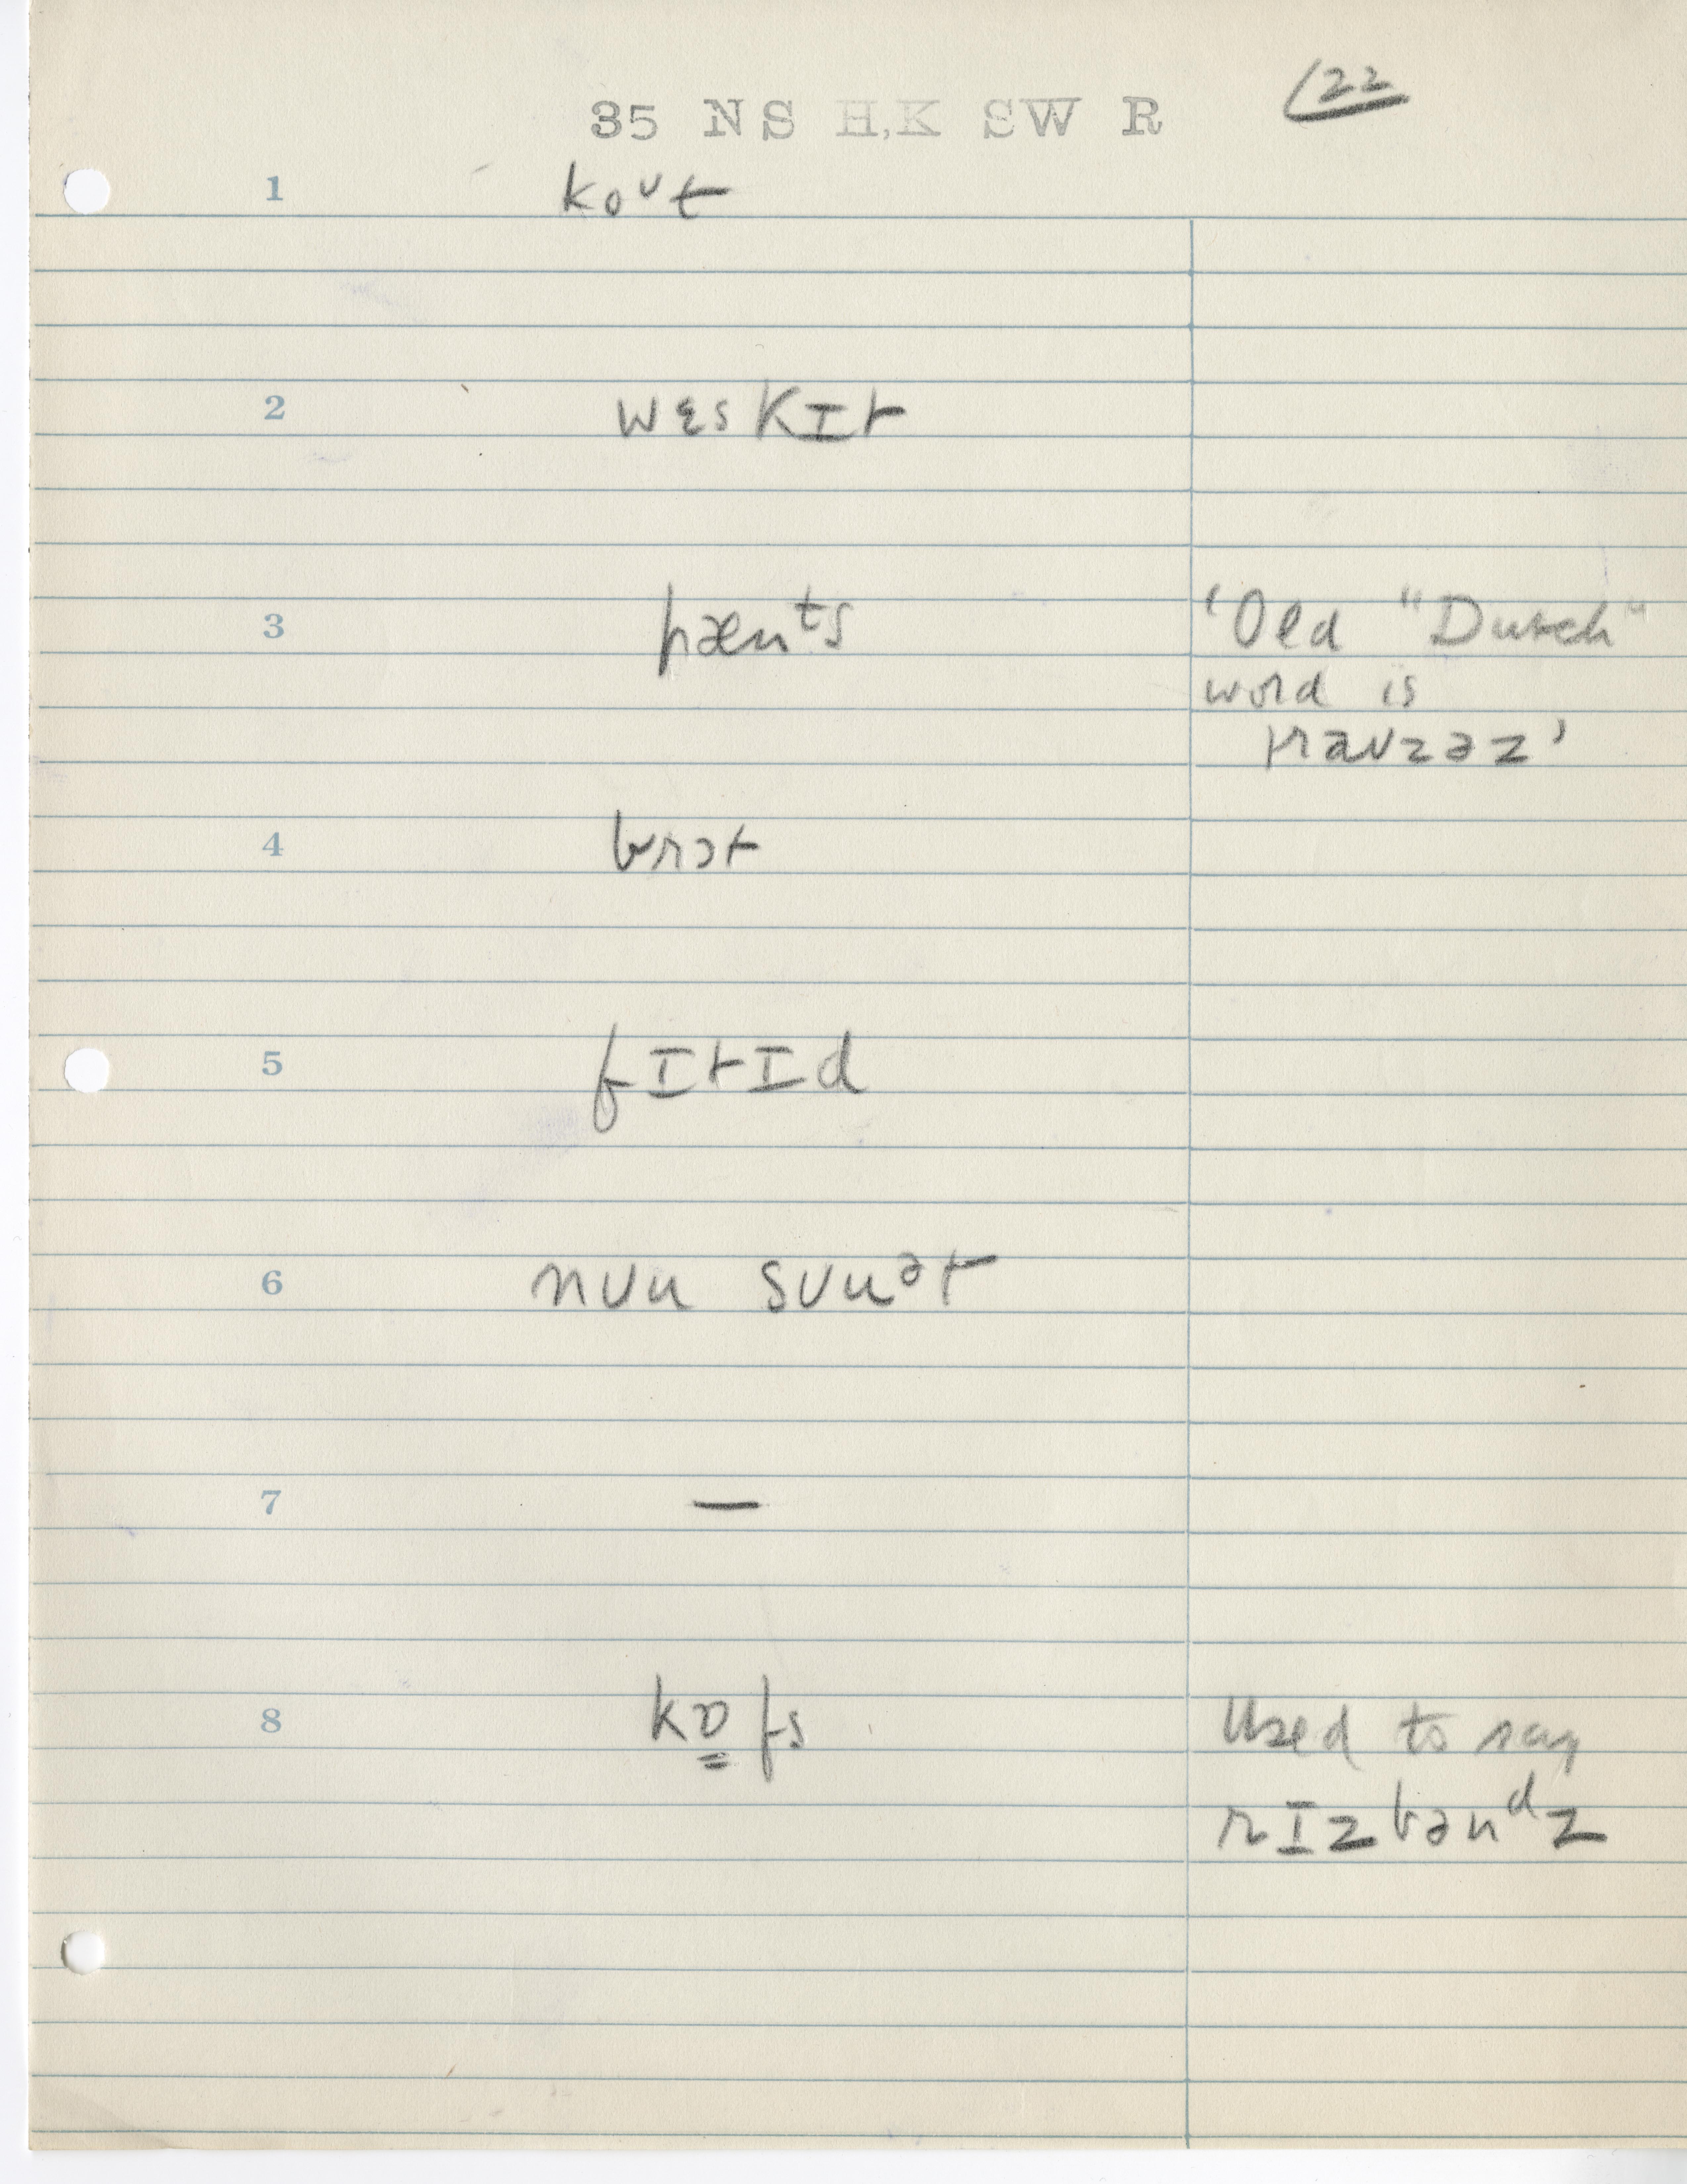 35 NS H,K SW R
122
1 koᴜt
2 wɛskɪt
3 pænᵗs
'Old "Dutch"
word is
traᴜzəz'
4 brɔt
5 fɪtɪd
6 nᴜu sᴜuᵊt
7 —
8 kɒ̳fs
Used to say
rɪzbənᵈz